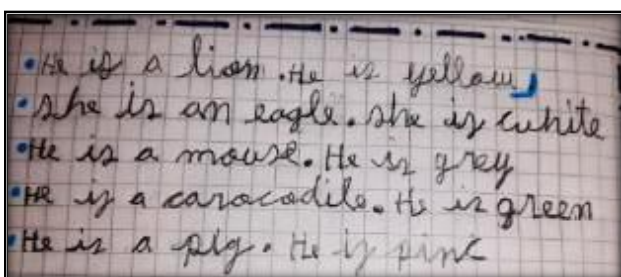 •He is a lion. He is yellow
•She is an eagle. she is cuhite
•He is a mouse. He is grey
•He is a carocodile. He is green
•He is a pig. He is pinc